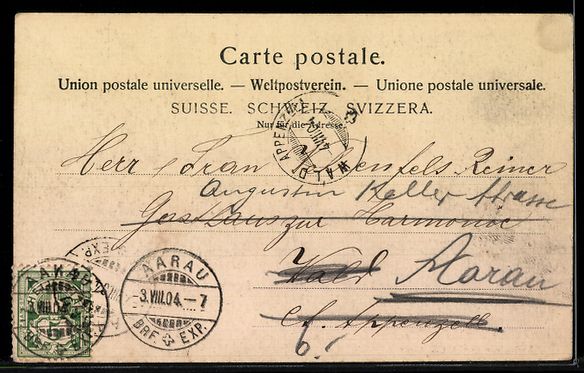 Carte postale.
Union postale universelle. — Weltpostverein. — Unione postale universale.
SUISSE. SCHWEIZ. SVIZZERA.
Nur für die Adresse.
WALD APPENZELL
Herr Reiner
Augustin Keller Strasse
zur Harmonie
Wald Aarau
Ct. Appenzell.
6.
AARAU
3.VIII.04.–7
BRF. EXP.
AARAU
BRF. EXP.
5